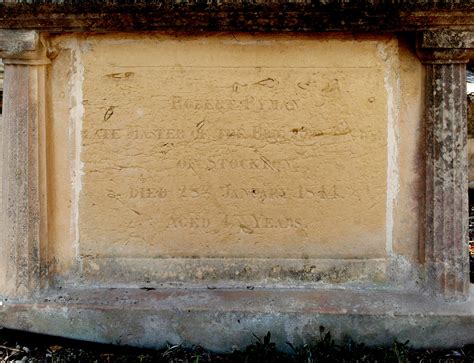 ROBERT RYMAN
LATE MASTER OF THE BRIG
OF STOCKTON
DIED 28TH JANUARY 1841
AGED 47 YEARS